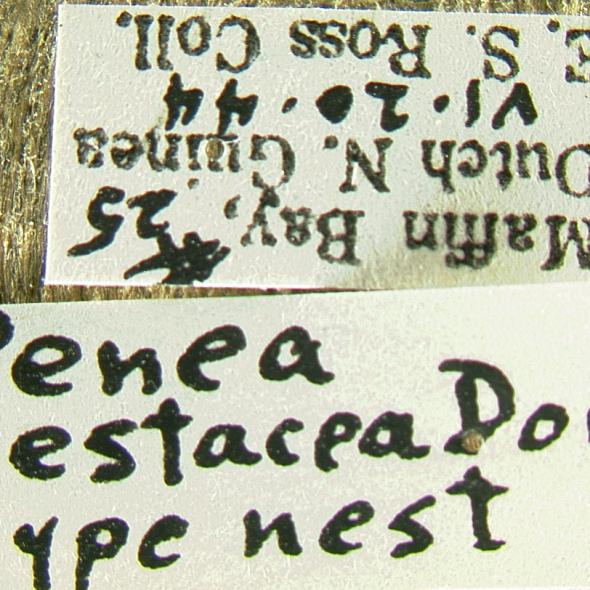 Maffin Bay, #25
Dutch N. Guinea
VI·20·44
E. S. Ross Coll.
enea
estacea Do
ype nest